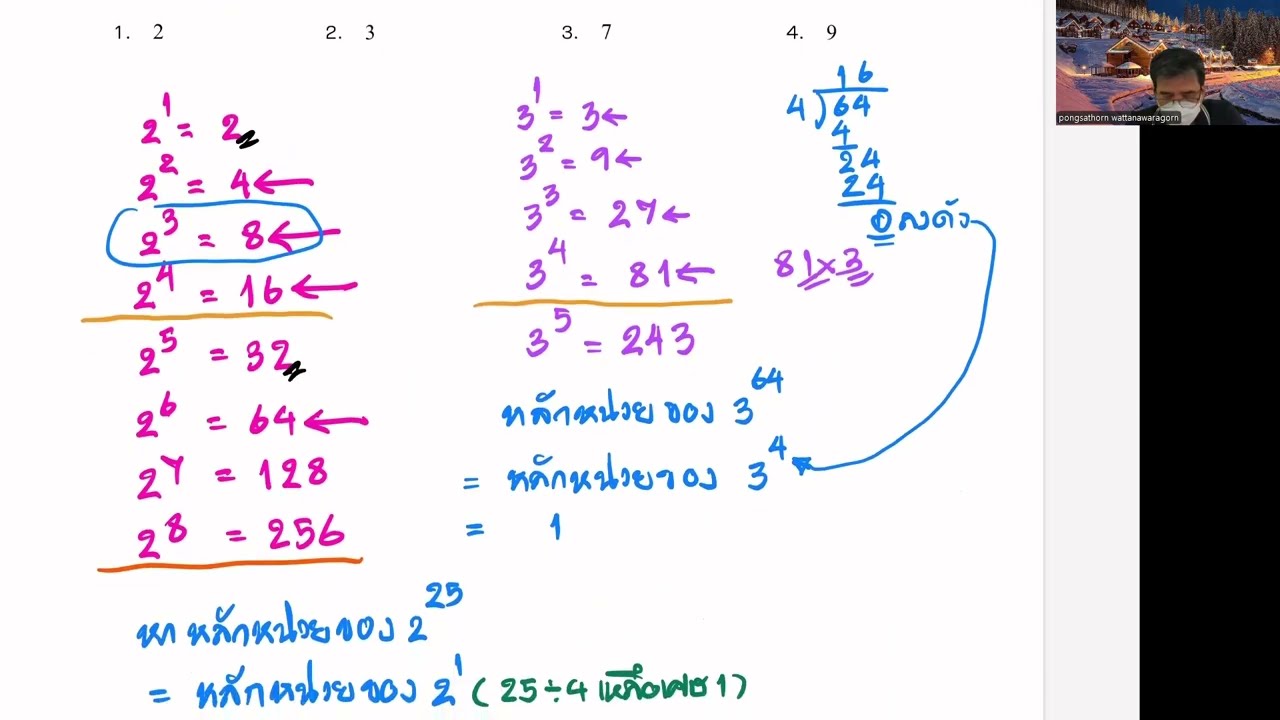 1. 2 2. 3 3. 7 4. 9
2^1 = 2
2^2 = 4 ←
2^3 = 8 ←
2^4 = 16 ←
2^5 = 32
2^6 = 64 ←
2^7 = 128
2^8 = 256
3^1 = 3 ←
3^2 = 9 ←
3^3 = 27 ←
3^4 = 81 ←
3^5 = 243
16
4)64
4
24
24
0 ลงตัว
81×3
หลักหน่วยของ 3^64
= หลักหน่วยของ 3^4
= 1
หาหลักหน่วยของ 2^25
= หลักหน่วยของ 2^1 (25÷4 เหลือเศษ 1)
pongsathorn wattanawaragorn